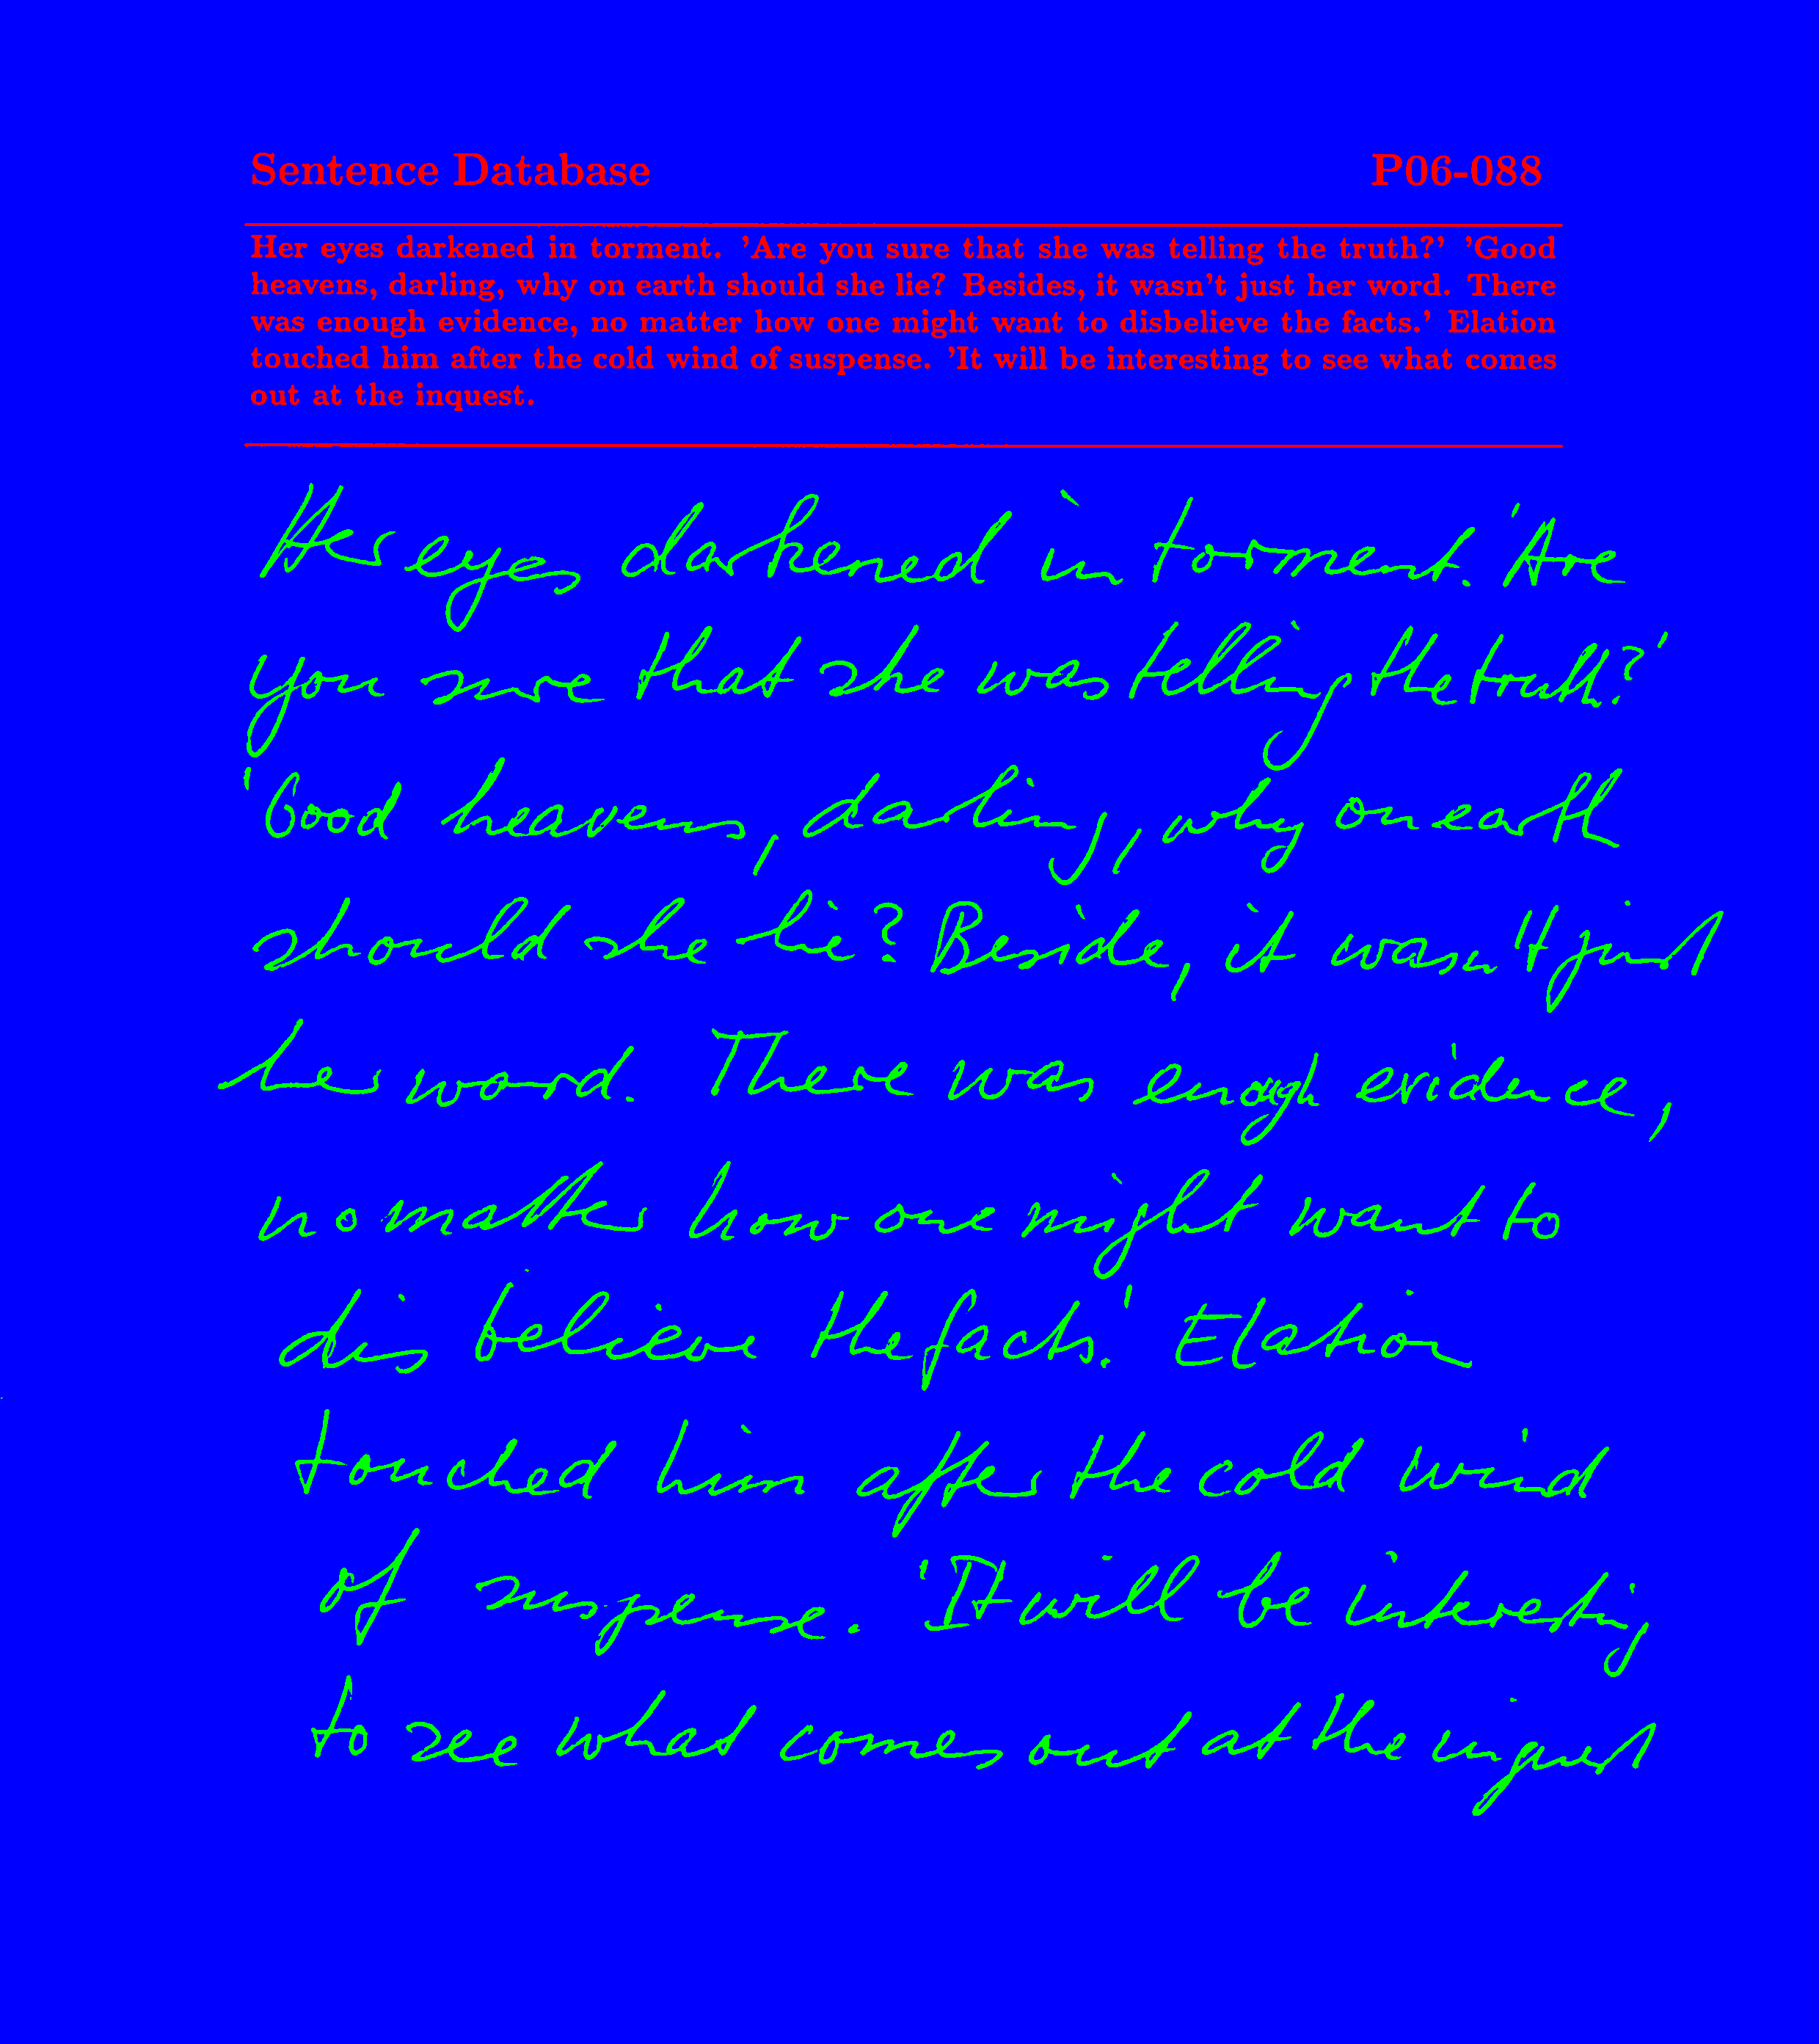 Sentence Database P06-088
Her eyes darkened in torment. 'Are you sure that she was telling the truth?' 'Good
heavens, darling, why on earth should she lie? Besides, it wasn't just her word. There
was enough evidence, no matter how one might want to disbelieve the facts.' Elation
touched him after the cold wind of suspense. 'It will be interesting to see what comes
out at the inquest.
Her eyes darkened in torment. 'Are
you sure that she was telling the truth?'
'Good heavens, darling, why on earth
should she lie? Beside, it wasn't just
her word. There was enough evidence,
no matter how one might want to
dis believe the facts.' Elation
touched him after the cold wind
of suspense. 'It will be interesting
to see what comes out at the inquest